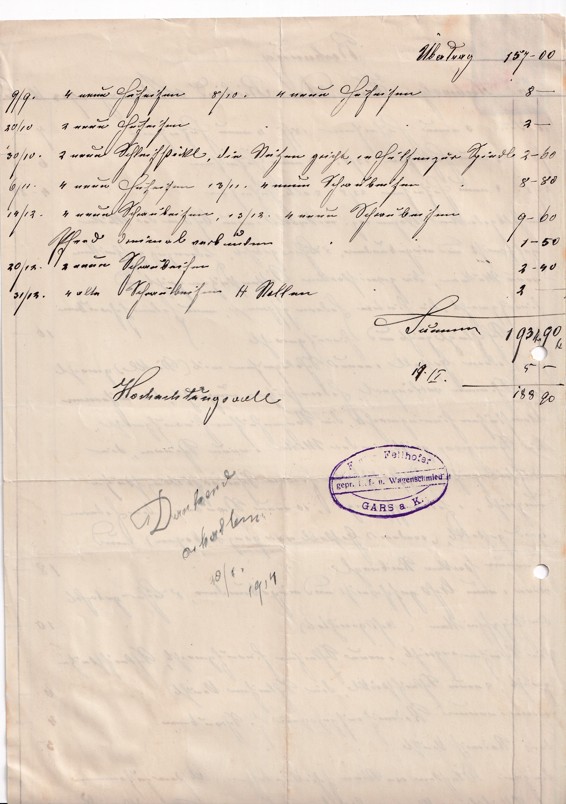 Übertrag 157-00
9/9. 4 neue Hufeisen 8/10. 4 neue Hufeisen 8 —
20/10 2 neue Hufeisen 2 —
30/10. 2 neue die 2-60
6/11. 4 neue Hufeisen 13/11. 4 neue Schraubeisen 8-80
19/12. 4 neue Schraubeisen, 13/12. 4 neue Schraubeisen 9-60
Pferd verbunden 1-50
20/12. 2 neue Schraubeisen 2-40
31/12. 4 alte Schraubeisen H Stollen 2
Summa 193,90
5 —
188 90
Hochachtungsvoll
Fellhofer
gepr. u. Wagenschmied
GARS a. K.
Dankend
erhalten
1914